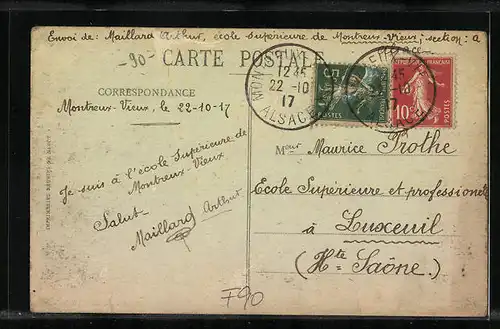 Envoi de: Maillard Arthur, école supérieure de Montreux-Vieux; section: a
-90-
CARTE POSTALE
12 45
22 -10
17
ALSACE
RÉPUBLIQUE FRANÇAISE
10c
POSTES
CORRESPONDANCE
Montreux-Vieux, le 22-10-17
Je suis à l'école Supérieure de
Montreux-Vieux
Salut
Maillard Arthur
Meur Maurice Prothe
Ecole Supérieure et professionelle
à Luxeuil
(Hte Saône)
F90